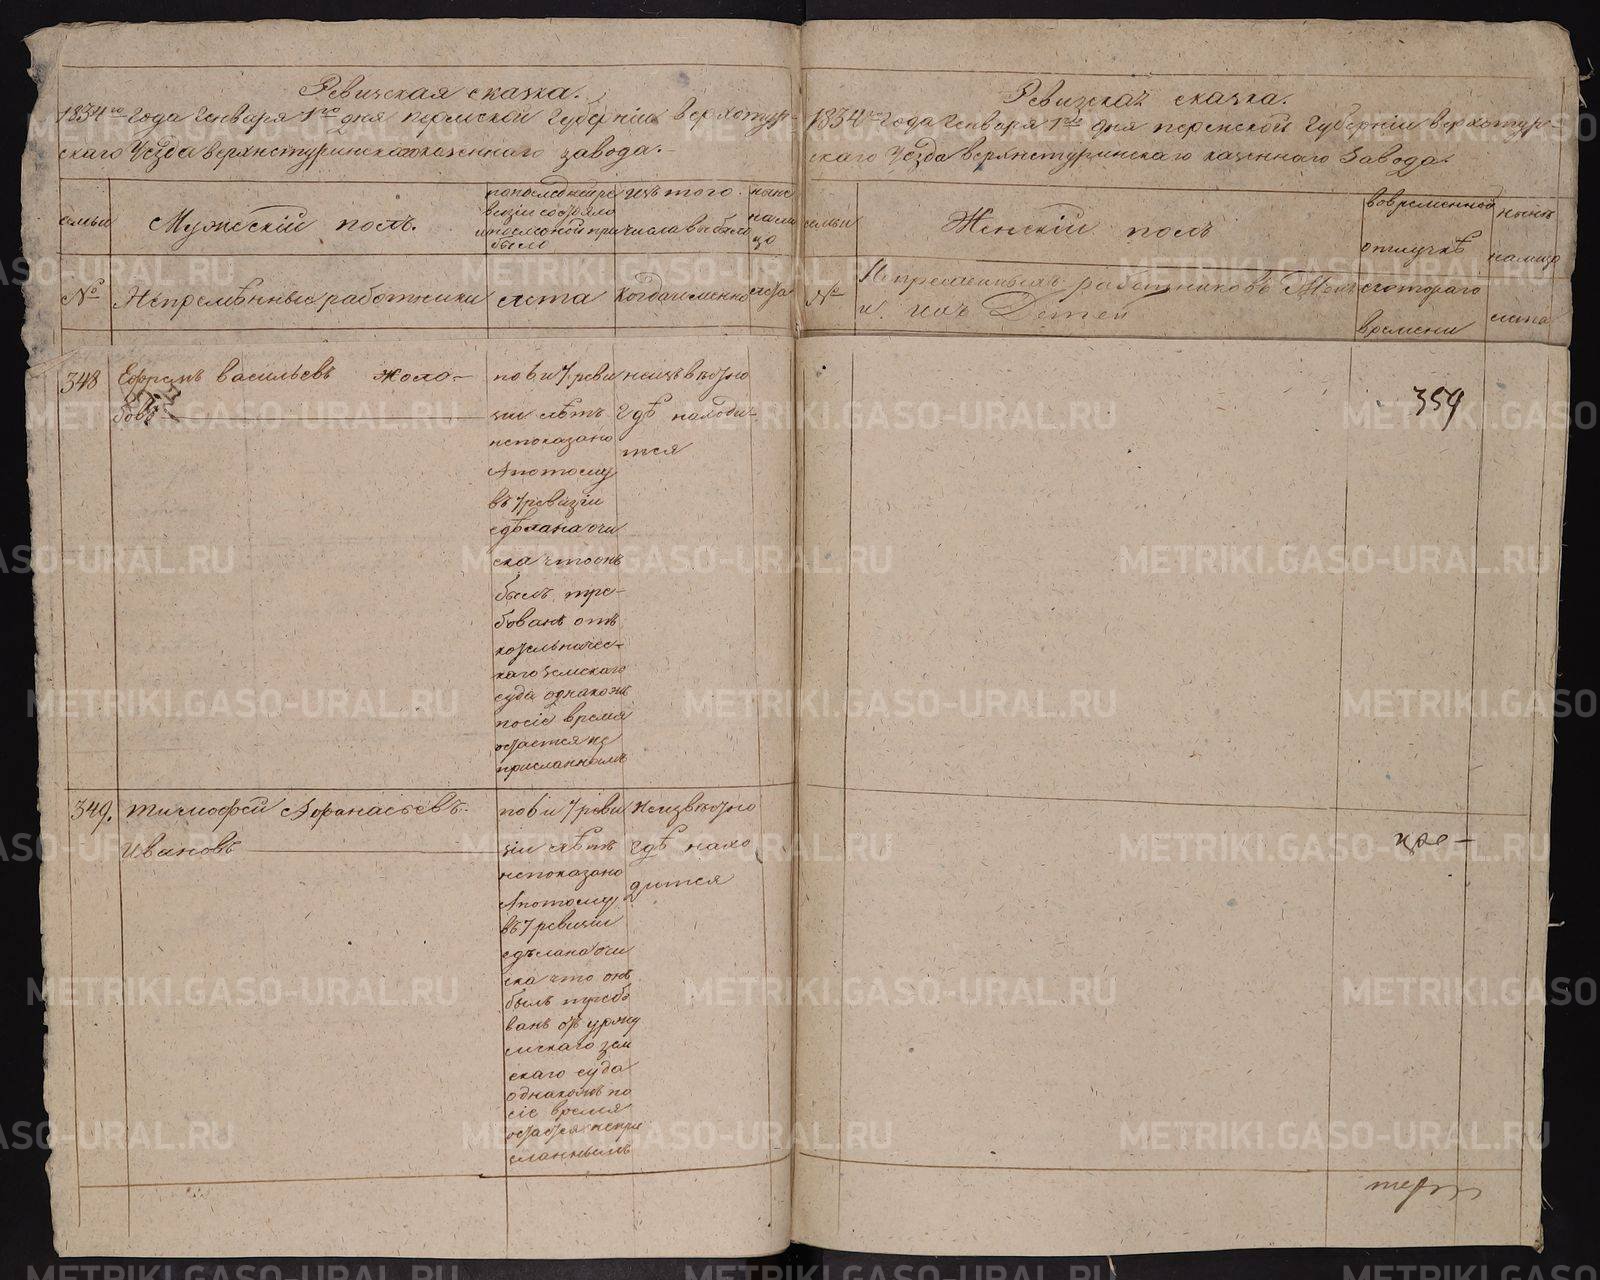 Ревизская сказка.
1834го года Генваря 1го дня пермской Губернiи верхотур-
скаго Уезда верхнетуринскаго казеннаго завода.
семьи
Мужескiй полъ.
по последней ре
визiи состояло
и после оной при
было
изъ того
числа выбыло
ныне
на ли
цо
№
Непремѣнные работники
лета
когда именно
лета
348
Ефремъ васильевъ Жоло-
бовъ
по 6 и 7 реви
зiи лѣтъ
непоказано
Апотому
въ 7 ревизiи
сдѣлана очи
ска что онъ
былъ тре-
бованъ отъ
козельничес-
каго земскаго
суда однакожъ
посiе время
остается не
присланнымъ
неизвѣстно
гдѣ находи-
тся
349.
тимофей Афанасьевъ.
Ивановъ
по 6 и 7 реви
зiи лѣтъ
непоказано
Апотому
въ 7 ревизiи
сдѣлана очи
ска что онъ
былъ требо
ванъ отъ уржу
мскаго зем
скаго суда
однакожъ по
сiе время
остается непри
сланнымъ
Неизвѣстно
гдѣ нахо
дится
Ревизская сказка.
1834го года Генваря 1го дня пермской Губернiи верхотур-
скаго Уезда верхнетуринскаго казеннаго Завода.
семьи
Женскiй полъ
вовременной
отлучкѣ
нынѣ
налицо
№
Непременныхъ работниковъ Жены
и ихъ Детей
скотораго
времени
лета
359
METRIKI.GASO-URAL.RU